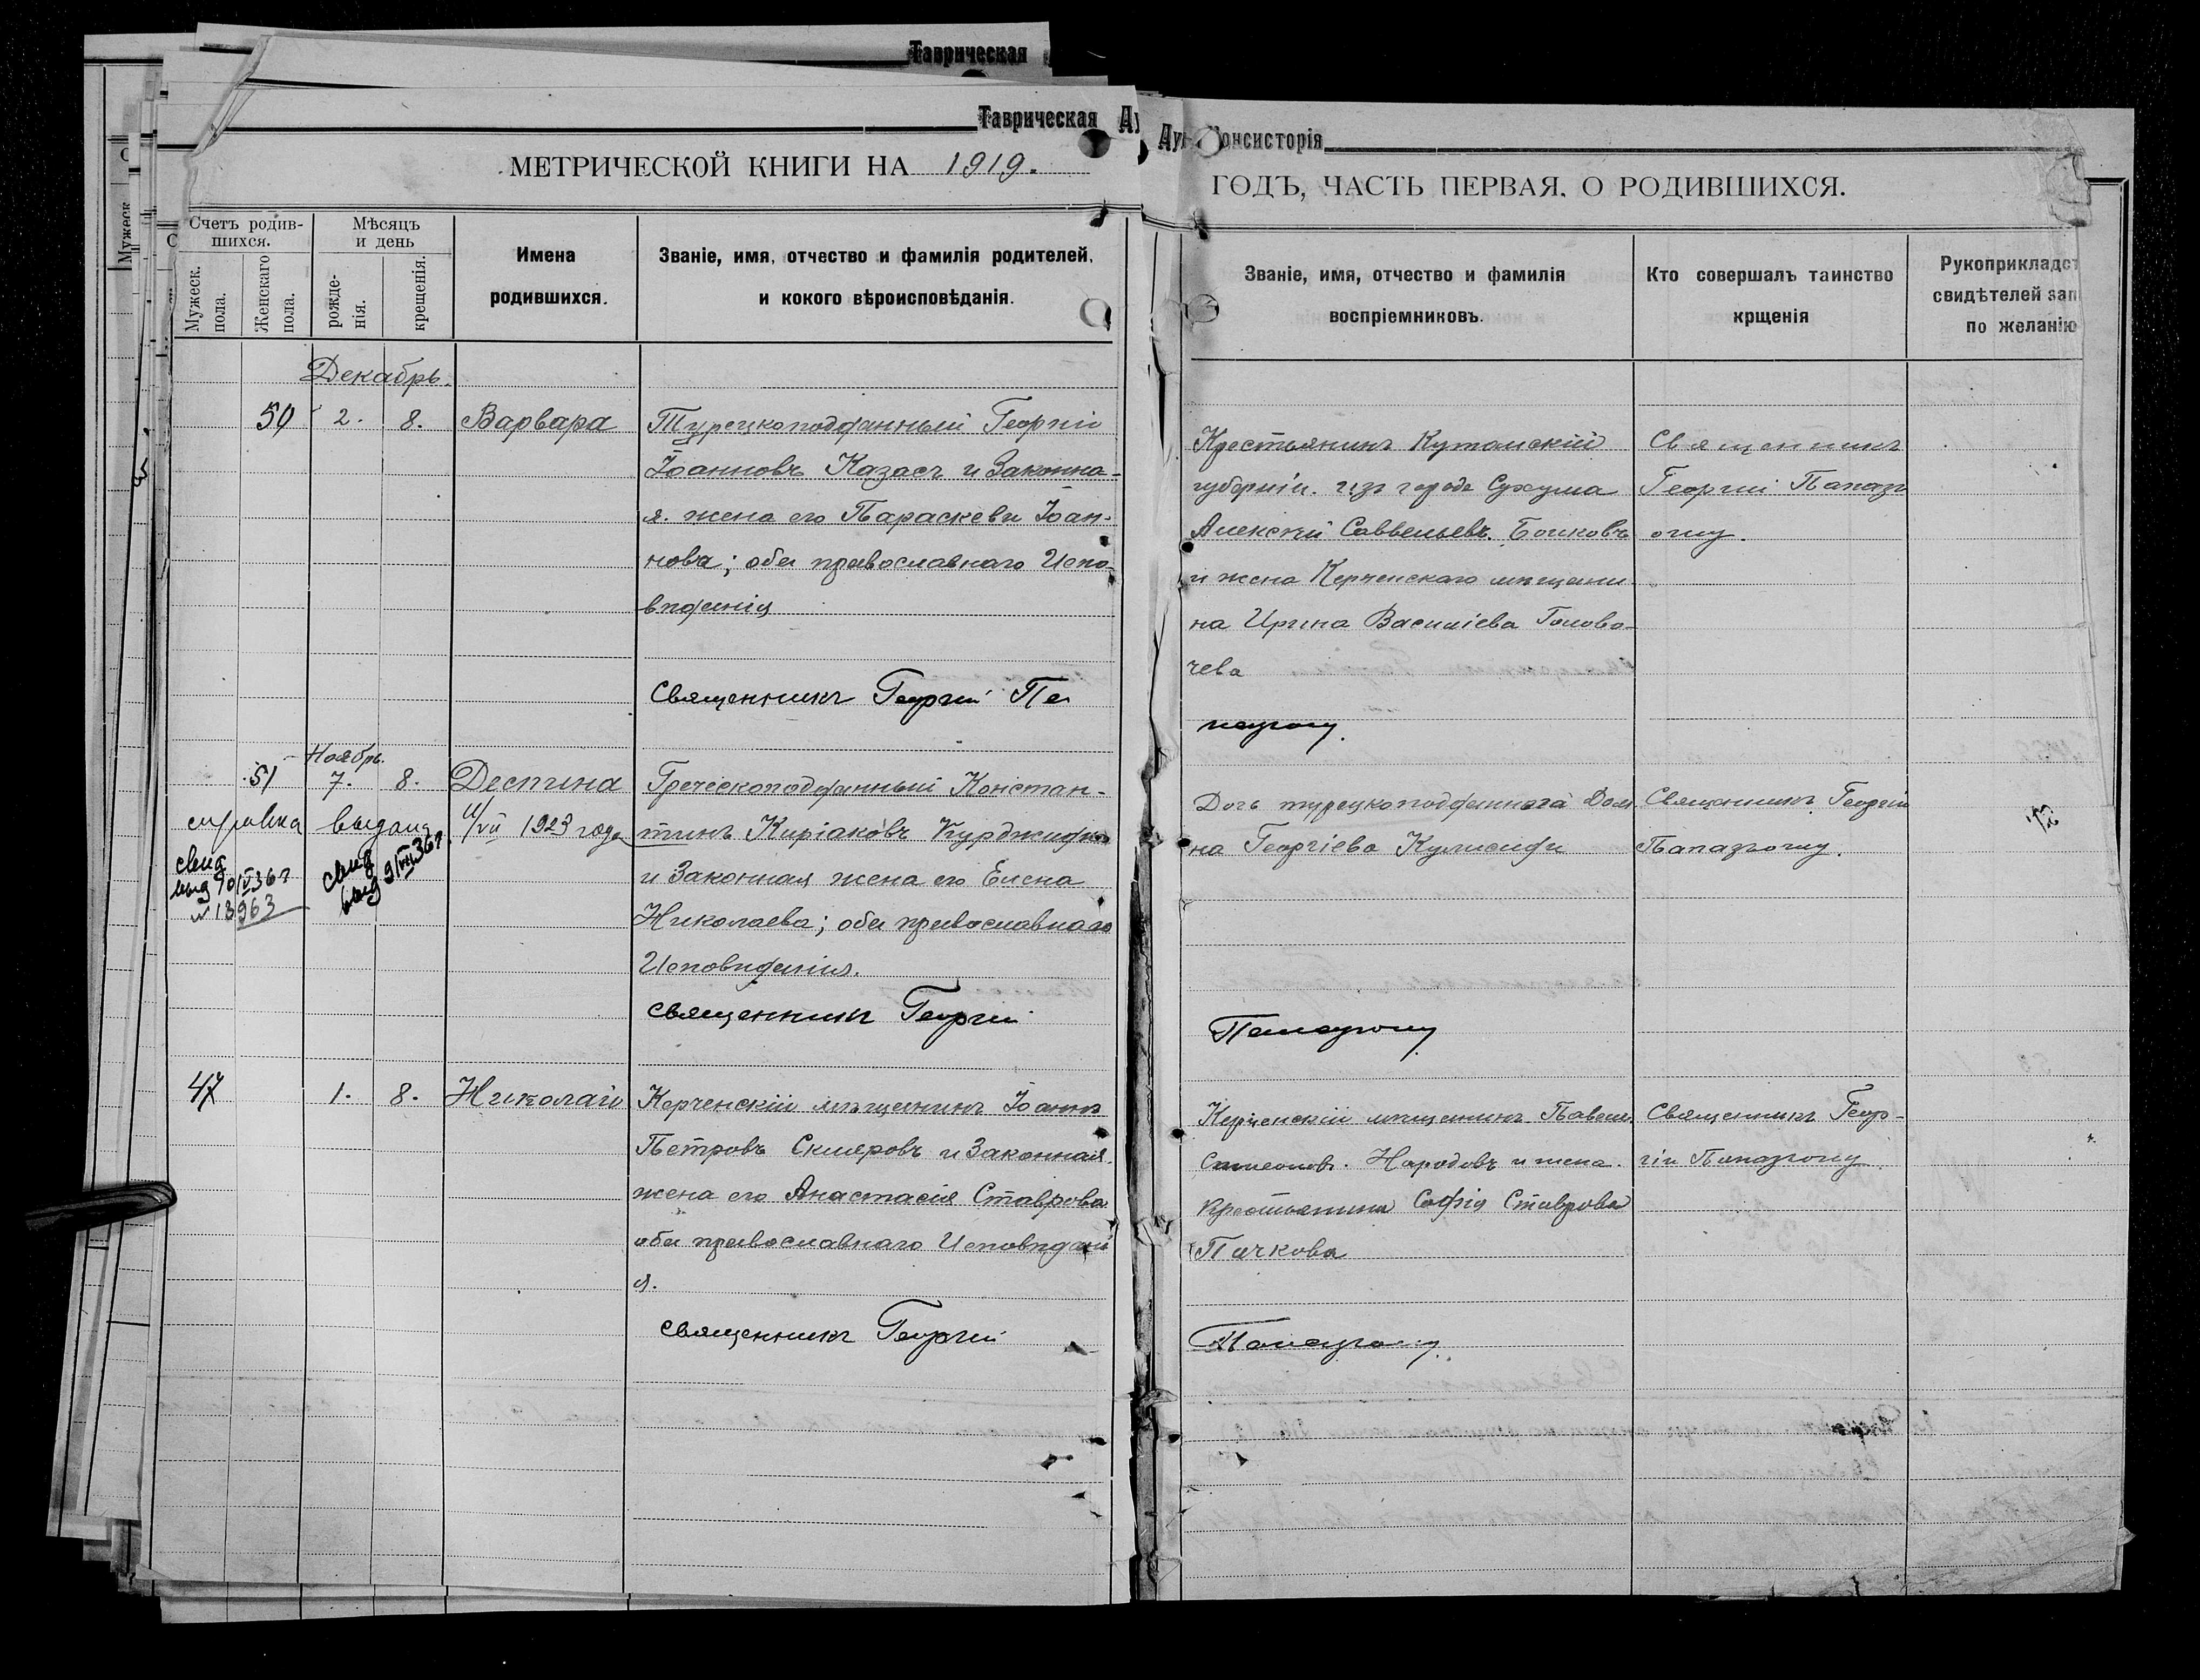 Таврическая
Таврическая
Консисторія
МЕТРИЧЕСКОЙ КНИГИ НА 1919.
ГОДЪ, ЧАСТЬ ПЕРВАЯ, О РОДИВШИХСЯ.
Счетъ родив-
шихся.
Мужеск.
пола.
Женскаго
пола.
Мѣсяцъ
и день
рожде-
нія.
крещенія.
Имена
родившихся.
Званіе, имя, отчество и фамилія родителей,
и кокого вѣроисповѣданія.
Званіе, имя, отчество и фамилія
воспріемниковъ.
Кто совершалъ таинство
крщенія
Рукоприкладст
свидѣтелей зап
по желанію
Декабрь.
50 2. 8. Варвара
Турецкоподданный Георгій
Іоанновъ Казасъ и Законна-
я. жена его Параскеви Іоан-
нова; оба православнаго Испо-
вѣданія
Священникъ Георгій Па
Крестьянинъ Кутаиской
губерніи. изъ города Сухума
Алексѣй Саввельевъ
и жена Керченскаго мѣщани
на Ирина Василіева Голова-
чева
Священникъ
Георгій Папаз
оглу.
пазоглу.
Ноябрь.
51 7. 8. Деспина
справка выдана 11/VII 1923 года
свид
выд 9/VI36г
№ 13963
свид
выд
Греческоподданный Констан-
тинъ Киріаковъ
и Законная жена его Елена
Николаева; оба православнаго
Исповѣданія.
Священникъ Георгій
Дочь турецкоподданнаго
на Георгіева
Священникъ Георгій
Папазъоглу.
Папазоглу
47 1. 8. Николай
Керченскій мѣщанинъ Іоаннъ
Петровъ Скляровъ и Законная
жена его Анастасія Ставрова
оба православнаго Исповѣдані
я.
Священникъ Георгій
Керченскій мѣщанинъ Павелъ
Симеоновъ. Народовъ и жена.
крестьянина Софія Ставрова
Пичкова
Священникъ Геор-
гій Папазоглу.
Папазоглу.